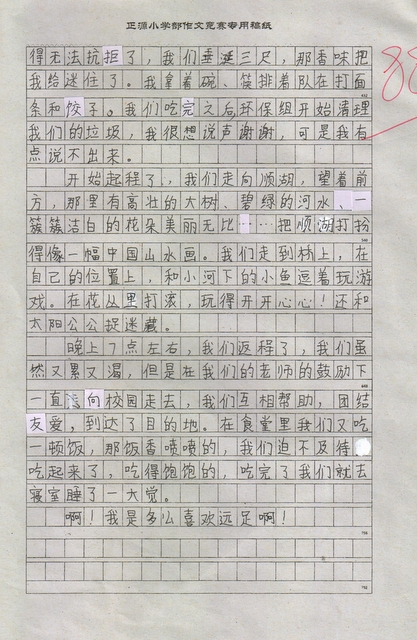 正源小学部作文竞赛专用稿纸
88
得无法抗拒了，我们垂涎三尺，那香味把
我给迷住了。我拿着碗、筷排着队在打面
条和饺子。我们吃完之后，环保组开始清理
我们的垃圾，我很想说声谢谢，可是我有
点说不出来。
开始起程了，我们走向顺湖，望着前
方，那里有高壮的大树、碧绿的河水、一
簇簇洁白的花朵美丽无比……把顺湖打扮
得像一幅中国山水画。我们走到桥上，在
自己的位置上，和小河下的小鱼逗着玩游
戏。在花丛里打滚，玩得开开心心！还和
太阳公公捉迷藏。
晚上7点左右，我们返程了，我们虽
然又累又渴，但是在我们的老师的鼓励下
一直向校园走去，我们互相帮助，团结
友爱，到达了目的地。在食堂里我们又吃
一顿饭，那饭香喷喷的，我们迫不及待
吃起来了，吃得饱饱的，吃完了我们就去
寝室睡了一大觉。
啊！我是多么喜欢远足啊！